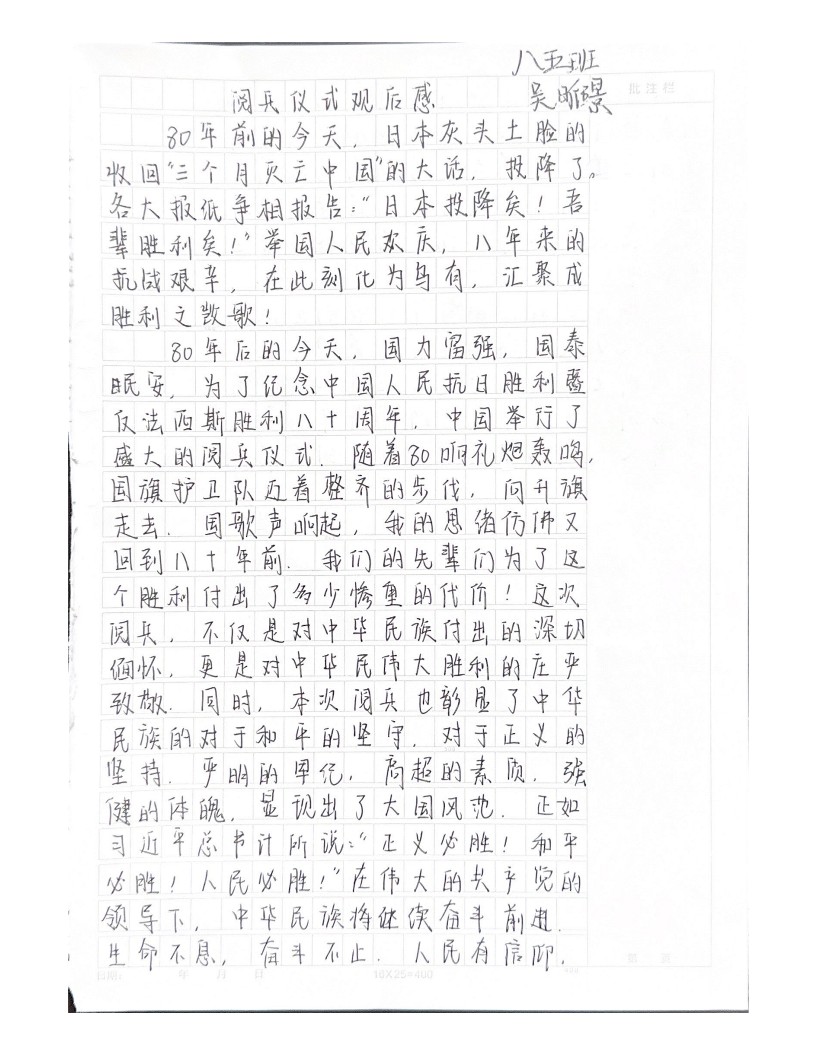 八五班
阅兵仪式观后感
吴昕璟
批注栏
80年前的今天，日本灰头土脸的
收回“三个月灭亡中国”的大话，投降了。
各大报纸争相报告：“日本投降矣！吾
辈胜利矣！”举国人民欢庆，八年来的
抗战艰辛，在此刻化为乌有，汇聚成
胜利之凯歌！
80年后的今天，国力富强，国泰
民安，为了纪念中国人民抗日胜利暨
反法西斯胜利八十周年，中国举行了
盛大的阅兵仪式．随着80响礼炮轰鸣，
国旗护卫队迈着整齐的步伐，向升旗
走去．国歌声响起，我的思绪仿佛又
回到八十年前．我们的先辈们为了这
个胜利付出了多少惨重的代价！这次
阅兵，不仅是对中华民族付出的深切
缅怀，更是对中华民伟大胜利的庄严
致敬．同时，本次阅兵也彰显了中华
民族的对于和平的坚守，对于正义的
坚持．严明的军纪，高超的素质，强
健的体魄，显现出了大国风范．正如
习近平总书计所说：“正义必胜！和平
必胜！人民必胜！”在伟大的共产党的
领导下，中华民族将继续奋斗前进．
生命不息，奋斗不止．人民有信仰，
日期： 年 月 日 16X25=400 第 页